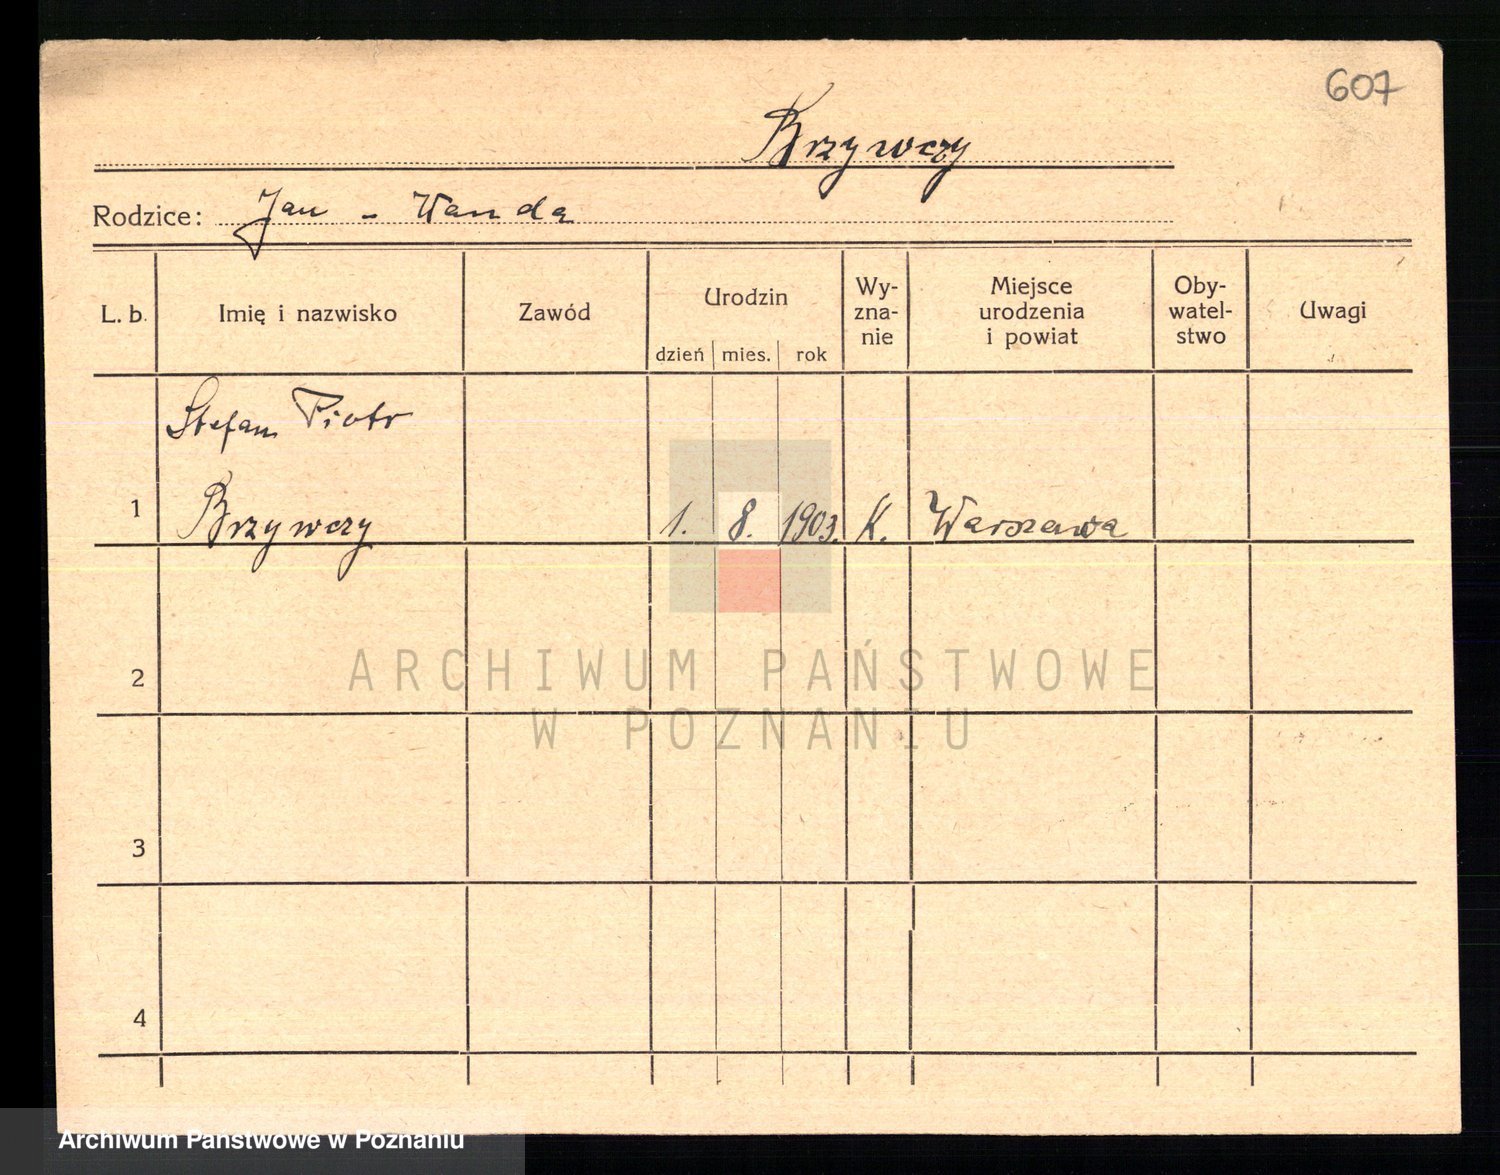 607
Brzywczy
Rodzice: Jan - Wanda
L. b. Imię i nazwisko Zawód Urodzin dzień mies. rok Wy-zna-nie Miejsce urodzenia i powiat Oby-watel-stwo Uwagi
Stefan Piotr
1 Brzywczy 1. 8. 1903. K. Warszawa
2
ARCHIWUM PAŃSTWOWE
W POZNANIU
3
4
Archiwum Państwowe w Poznaniu